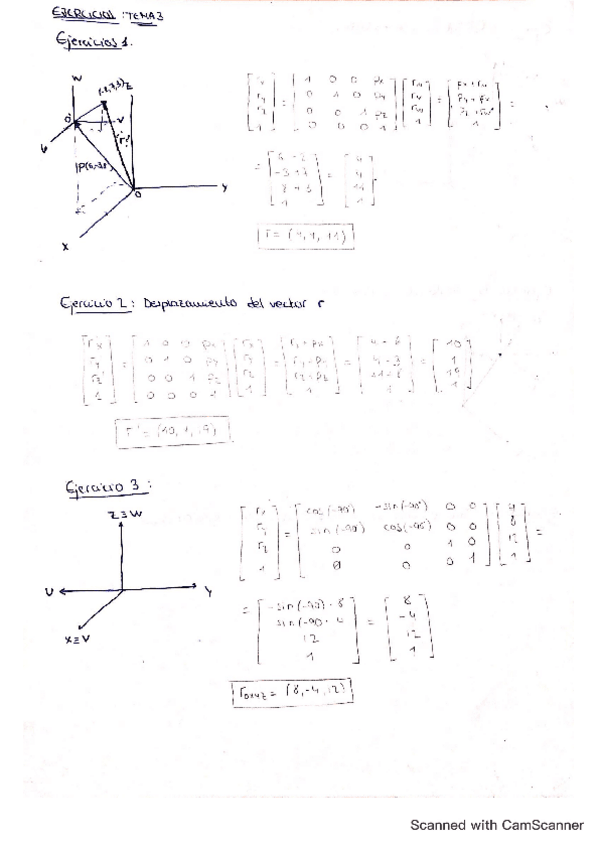 EJERCICIOS : TEMA 3
Ejercicios 1.
W
(-2,7,3)
Z
O'
V
r?
U
P(6,-3,8)
O
Y
X
1 0 0 Px
0 1 0 Py
0 0 1 Pz
0 0 0 1
=
6 - 2
-3 + 7
8 + 3
1
=
4
4
11
1
r = (4, 4, 11)
Ejercicio 2 : Desplazamiento del vector r
rx
ry
rz
1
=
1 0 0 Px
0 1 0 Py
0 0 1 Pz
0 0 0 1
=
10
1
19
1
r' = (10, 1, 19)
Ejercicio 3 :
Z≡W
U
Y
X≡V
rx
ry
rz
1
=
cos(-90°) -sin(-90°) 0 0
sin(-90°) cos(-90°) 0 0
0 0 1 0
0 0 0 1
4
8
12
1
=
=
-sin(-90) · 8
sin(-90 · 4
12
1
=
8
-4
12
1
roxyz = (8, -4, 12)
Scanned with CamScanner